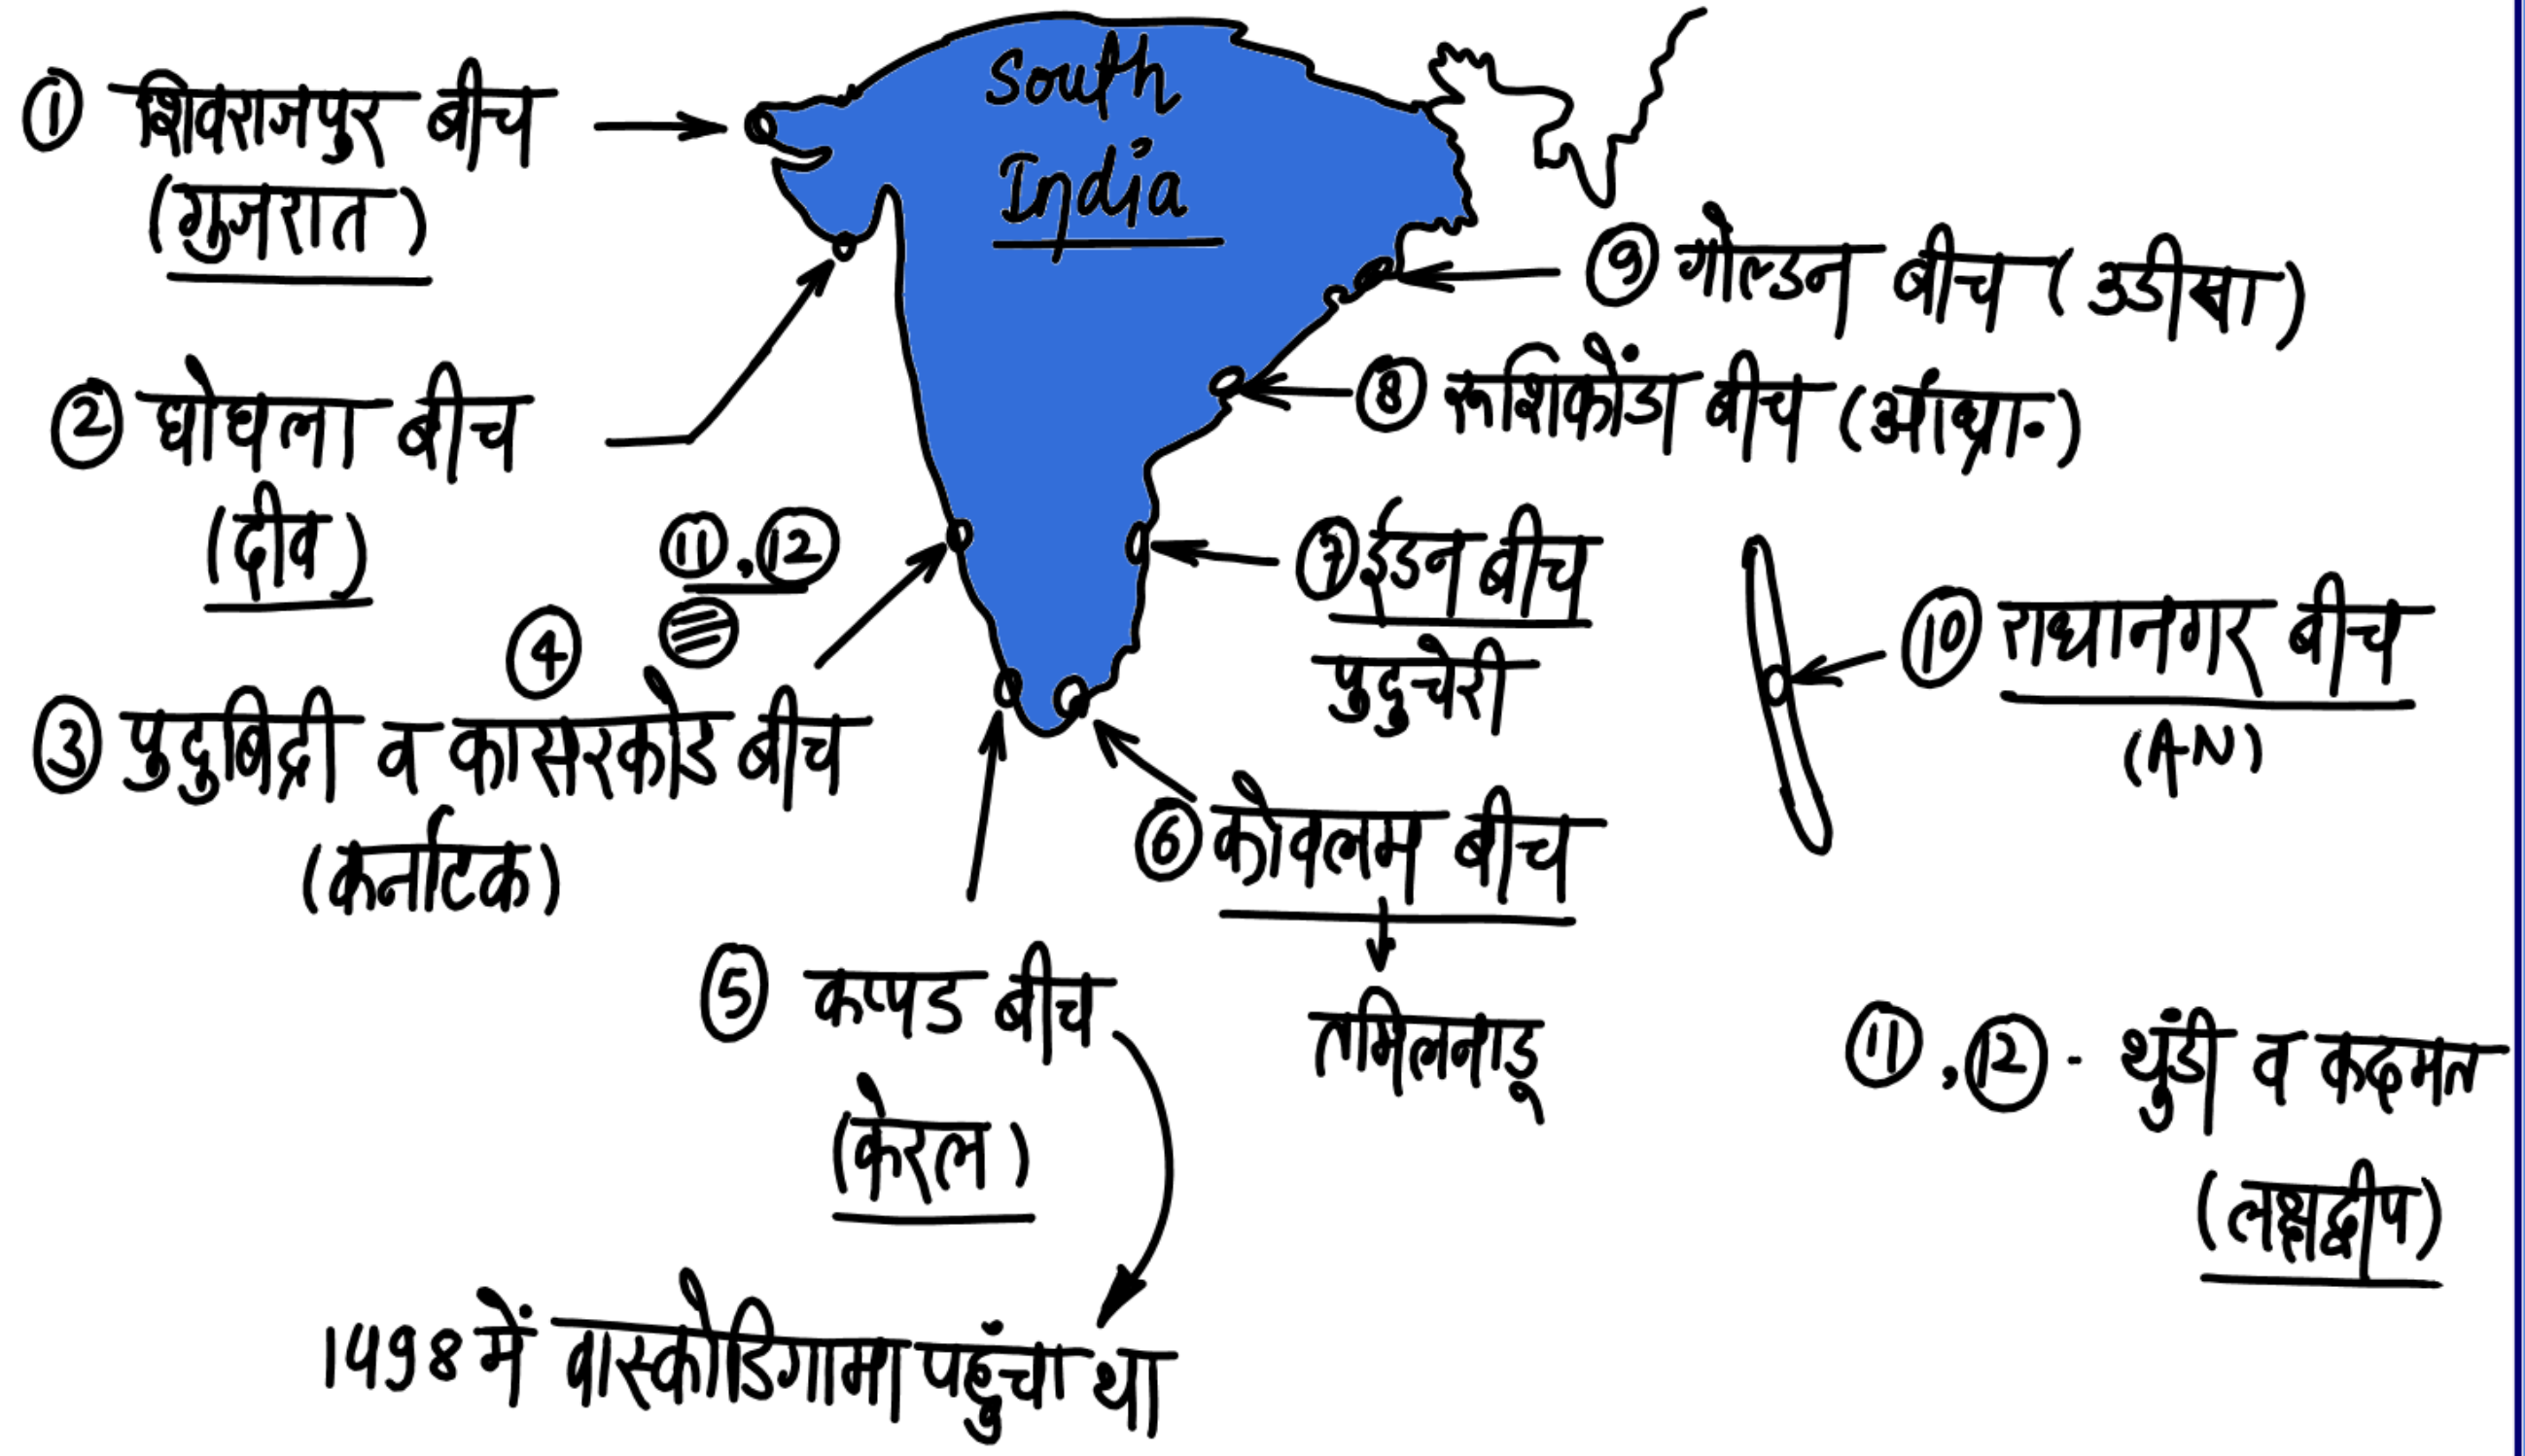 South
India
① शिवराजपुर बीच
(गुजरात)
② घोघला बीच
(दीव)
⑪,⑫
④
③ पुदुबिद्री व कासरकोड बीच
(कर्नाटक)
⑤ कप्पड बीच
(केरल)
1498 में वास्कोडिगामा पहुँचा था
⑥ कोवलम बीच
तमिलनाडू
⑦ ईडन बीच
पुदुचेरी
⑧ रूशिकोंडा बीच (आंध्रा.)
⑨ गोल्डन बीच (उडीसा)
⑩ राधानगर बीच
(AN)
⑪,⑫ - थुंडी व कदमत
(लक्षद्वीप)